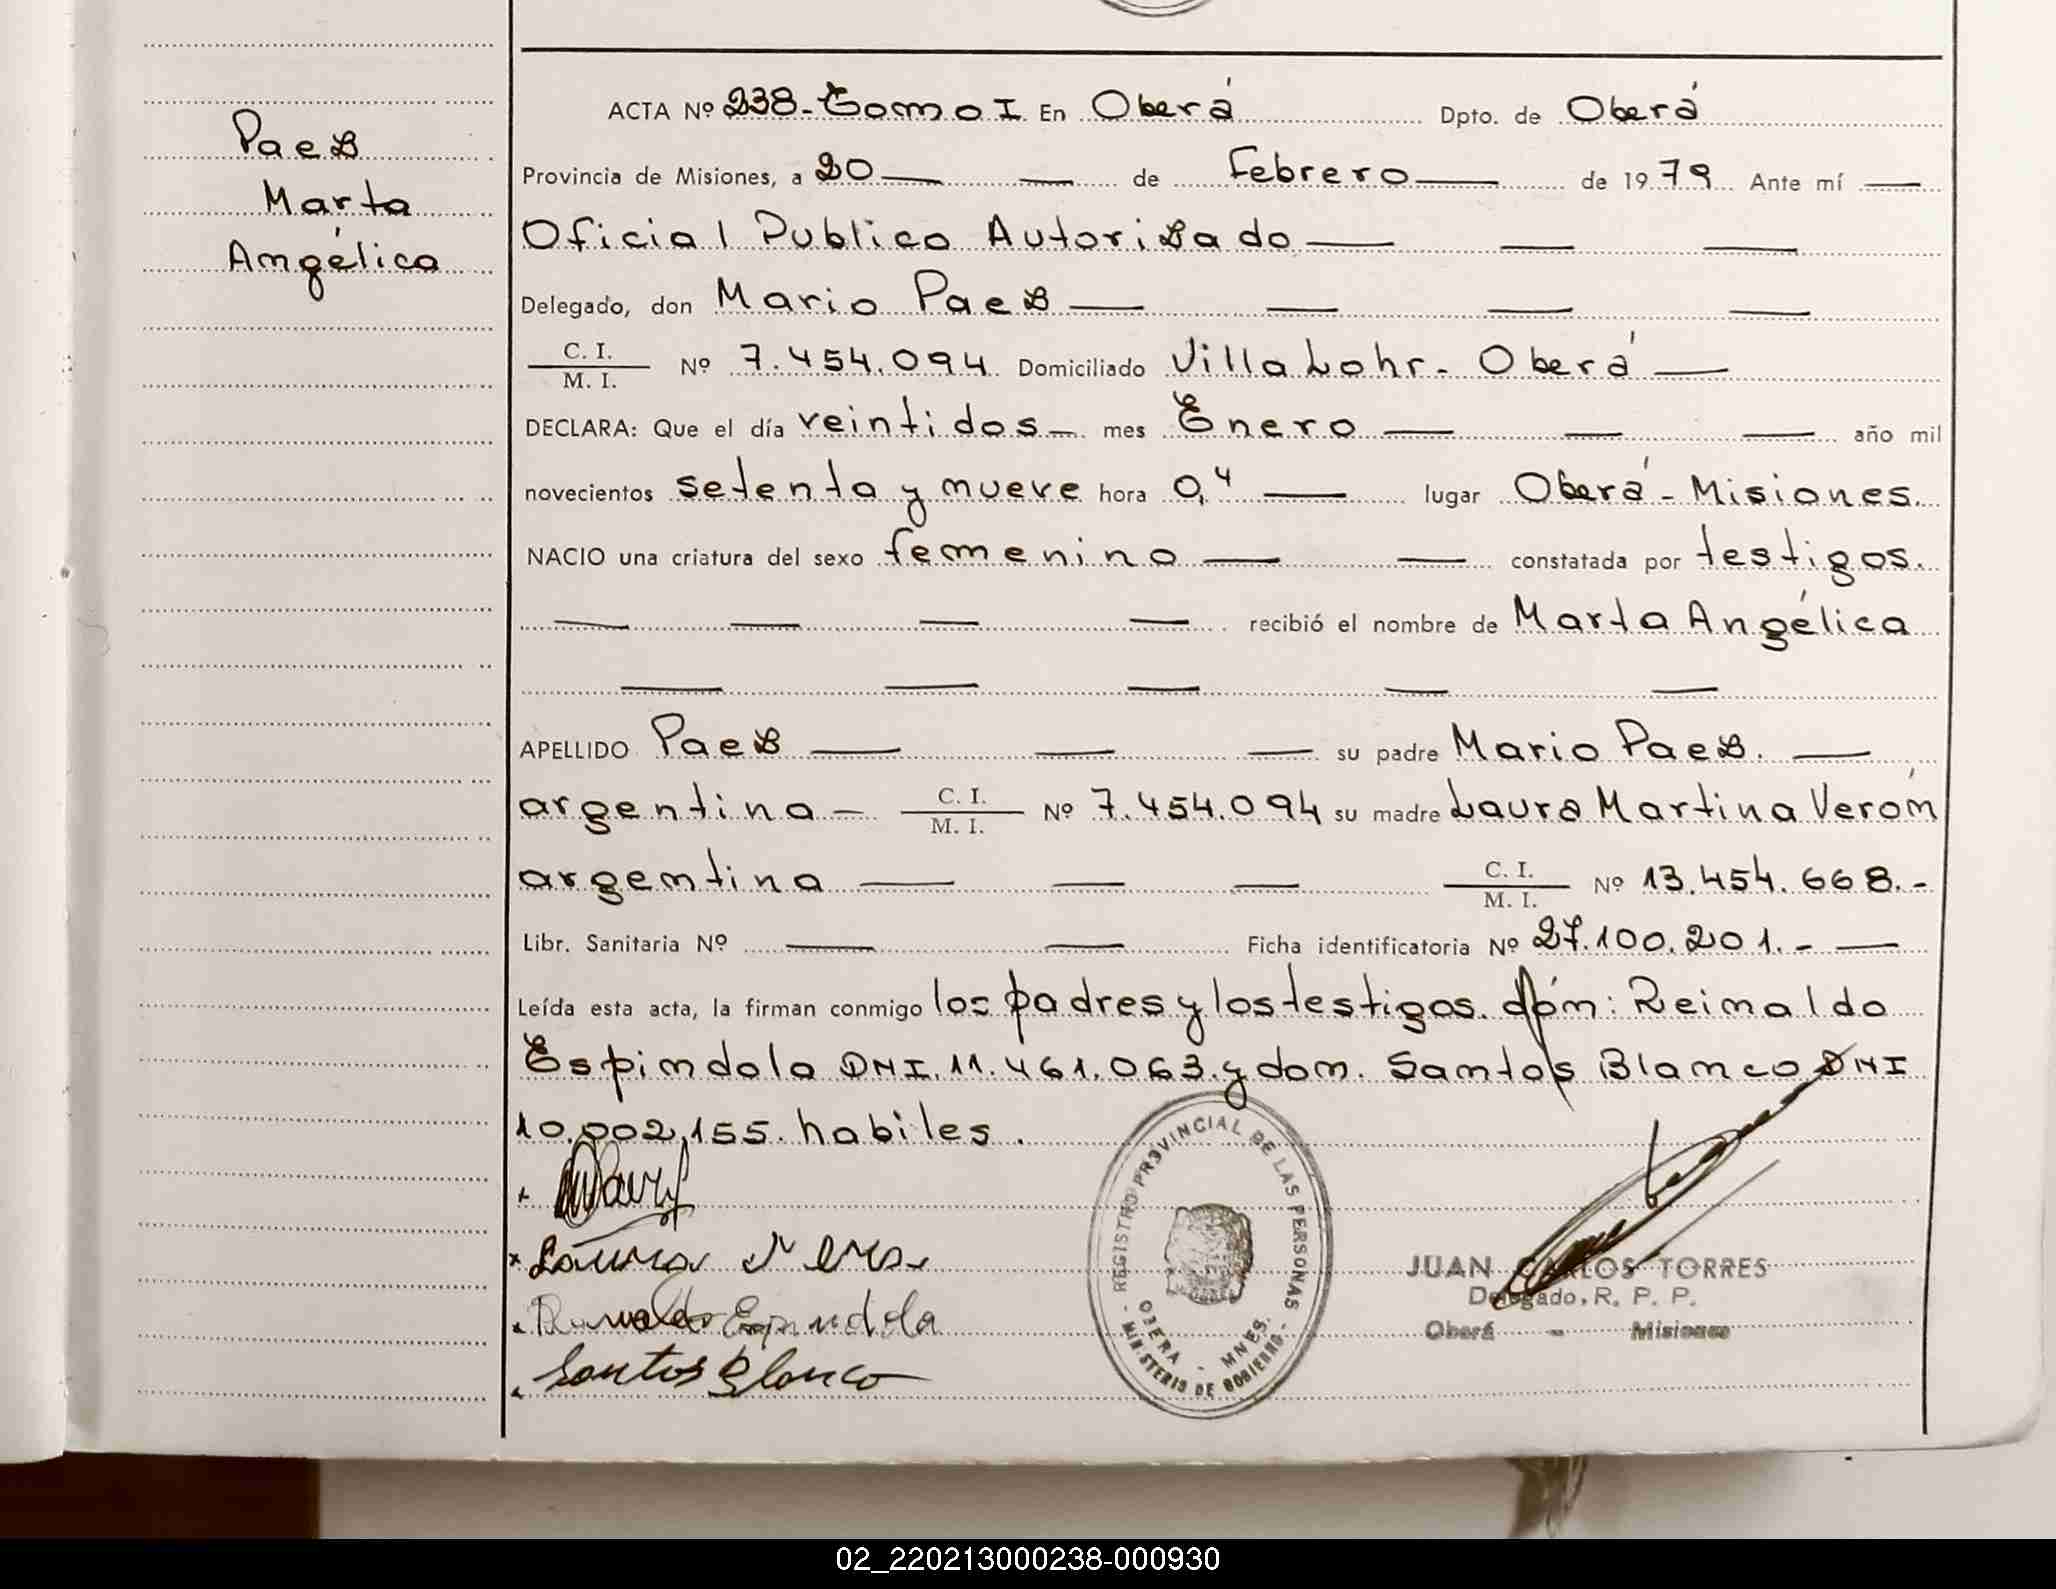 Paez
Marta
Angélica
ACTA Nº 238-Tomo I En Oberá Dpto. de Oberá
Provincia de Misiones, a 20 de Febrero de 1979 Ante mí
Oficial Publico Autorizado
Delegado, don Mario Paez
C. I.
M. I. Nº 7.454.094 Domiciliado Villa Lohr - Oberá
DECLARA: Que el día veintidos mes Enero año mil
novecientos setenta y nueve hora 0,4 lugar Oberá - Misiones.
NACIO una criatura del sexo femenino constatada por testigos.
recibió el nombre de Marta Angélica
APELLIDO Paez su padre Mario Paez.
argentina C. I.
M. I. Nº 7.454.094 su madre Laura Martina Verón
argentina C. I.
M. I. Nº 13.454.668.-
Libr. Sanitaria Nº Ficha identificatoria Nº 27.100.201.-
Leída esta acta, la firman conmigo los padres y los testigos. dón: Reinaldo
Espindola DNI. 11.461.063. y don. Santos Blanco DNI
10.002.155. habiles.
Laura
Espindola
Santos Blanco
REGISTRO PROVINCIAL DE LAS PERSONAS
OBERA - MNES.
MINISTERIO DE GOBIERNO
JUAN CARLOS TORRES
Delegado, R. P. P.
Oberá - Misiones
02_220213000238-000930